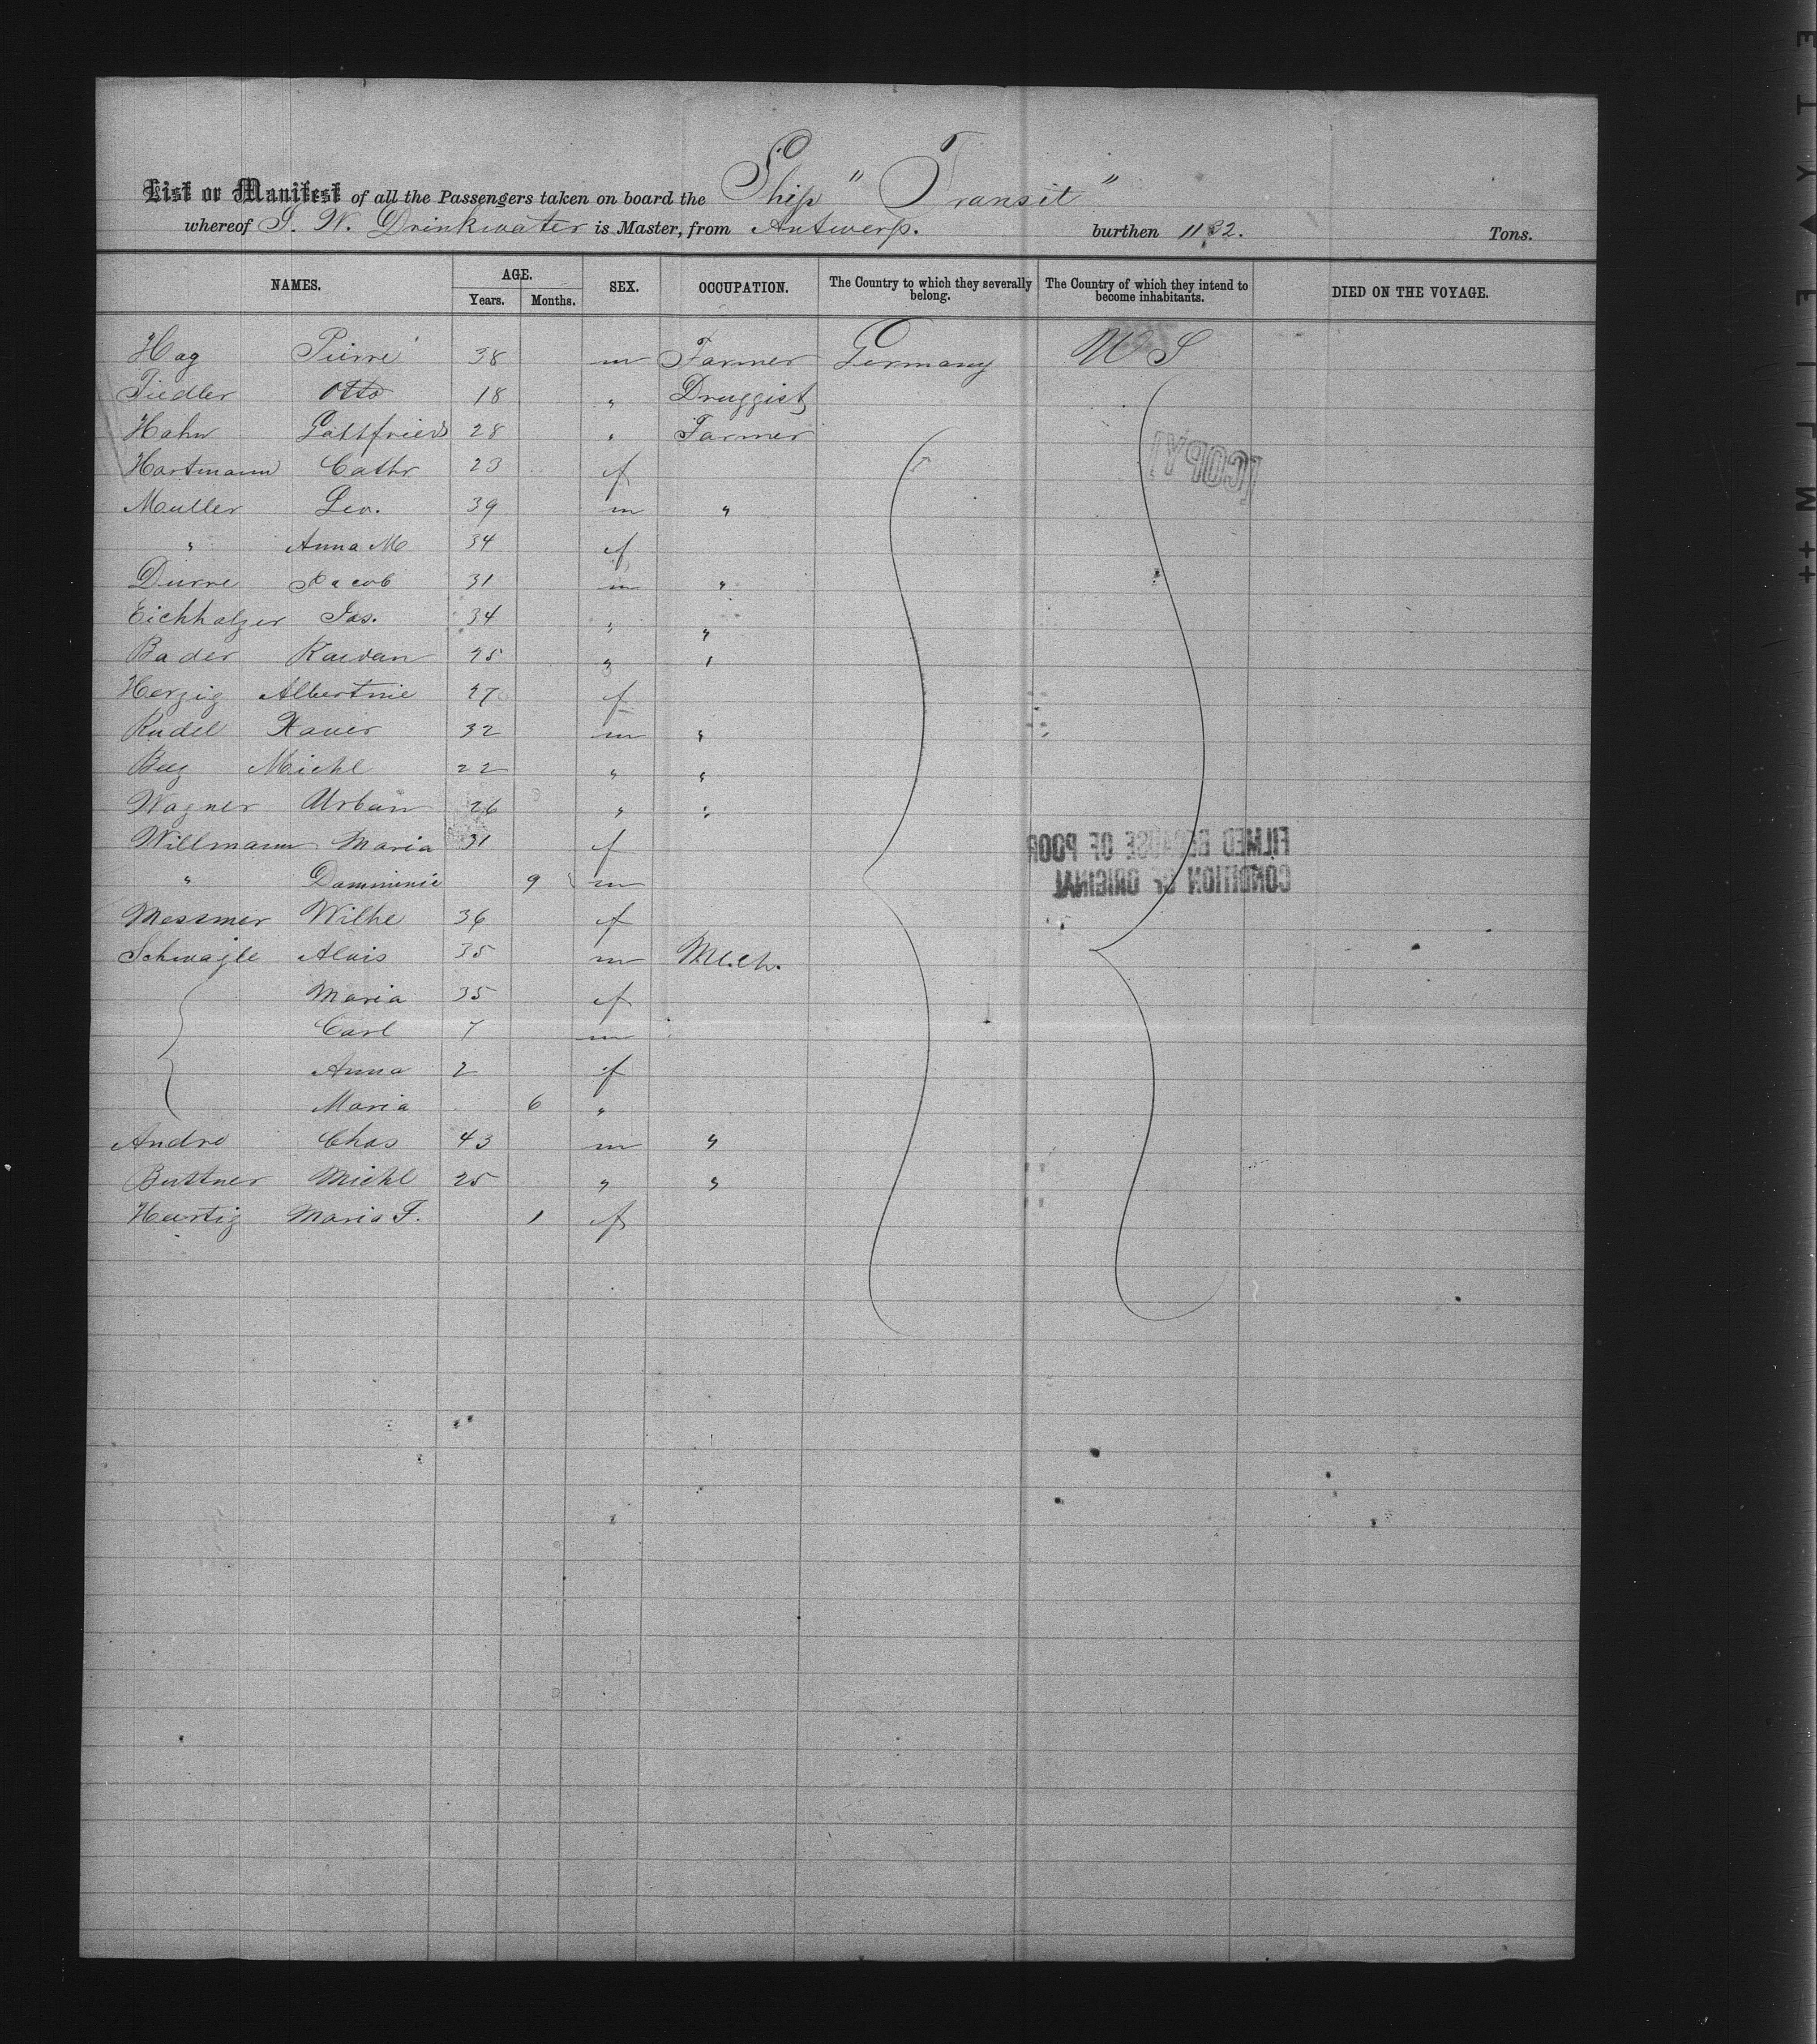 List or Manifest of all the Passengers taken on board the Ship "Transit"
whereof S. W. Drinkwater is Master, from Antwerp. burthen 1132. Tons.
NAMES. AGE. Years. Months. SEX. OCCUPATION. The Country to which they severally belong. The Country of which they intend to become inhabitants. DIED ON THE VOYAGE.
Hag Pierre 38 m Farmer Germany U S
Fiedler Otto 18 " Druggist
Hahn Gottfried 28 " Farmer
Hartmann Cathr 23 f
Muller Leo. 39 m "
" Anna M 34 f
Durre Jacob 31 m "
Eichholzer Jas. 34 " "
Bader 25 " "
Herzig Albertine 27 f
Rudel Xaver 32 m "
Michl 22 " "
Wagner Urban 26 " "
Willmann Maria 31 f
" Domminic 9 m
Messmer Wilhe 36 f
Schwagle Alois 35 m Mech.
Maria 35 f
Carl 7 m
Anna 2 f
Maria 6 "
Andre Chas 43 m "
Buttner Michl 25 " "
Hartig Maria F. 1 f
[COPY]
FILMED BECAUSE OF POOR
CONDITION OF ORIGINAL